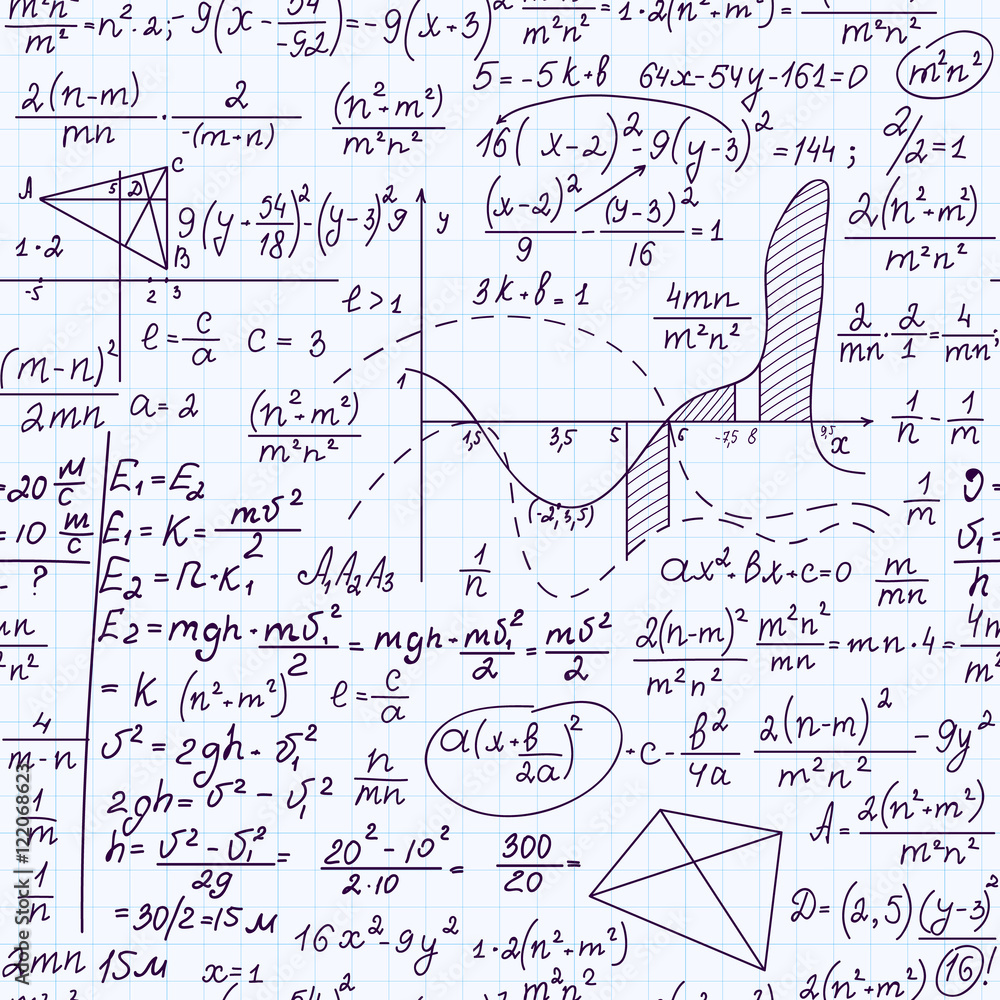 m²n²/m² = n²·2; -9(x - 54/-92) = -9(x+3)² /m²n² = 1·2(n²+m²) = /m²n²
5 = -5k+b 64x-54y-161=0 m²n²
2(n-m)/mn · 2/-(m+n) (n²+m²)/m²n²
16(x-2)² - 9(y-3)² = 144; 2/2=1
A C 5 D B
9(y+54/18)² - (y-3)²9 y
(x-2)²/9 - (y-3)²/16 = 1
2(n²+m²)/m²n²
1·2
-5 2 3
l > 1 3k+b=1 4mn/m²n²
l = c/a c = 3
2/mn · 2/1 = 4/mn;
(m-n)²/2mn
a = 2 (n²+m²)/m²n²
1 1,5 3,5 5 6 -7,5 8 9,5 x
1/n - 1/m
(-2;3,5)
=20 м/с E₁=E₂
1/m
=10 m/c E₁=K= mб²/2
б₁=
/h
- ? E₂=П+K₁ A₁A₂A₃ 1/n ax²+bx+c=0 m/mn
mn/²n²
E₂=mgh+mб₁²/2 = mgh+mб₁²/2 = mб²/2
2(n-m)²/m²n² m²n²/mn = mn·4 = 4m/m²
= K (n²+m²)² l = c/a
4/m-n
б² = 2gh+б₁² n/mn
a(x+b/2a)² + c - b²/4a 2(n-m)²/m²n² - 9y²
1/m
2gh = б² - б₁²
A = 2(n²+m²)/m²n²
1/n
h = б²-б₁²/2g = 20²-10²/2·10 = 300/20 =
D = (2,5)(y-3)²
=30/2=15 м 16x²-9y² 1·2(n²+m²)/m²n²
2mn 15м x=1
2(n²+m²) 16!
54)²
Adobe Stock | #122068623